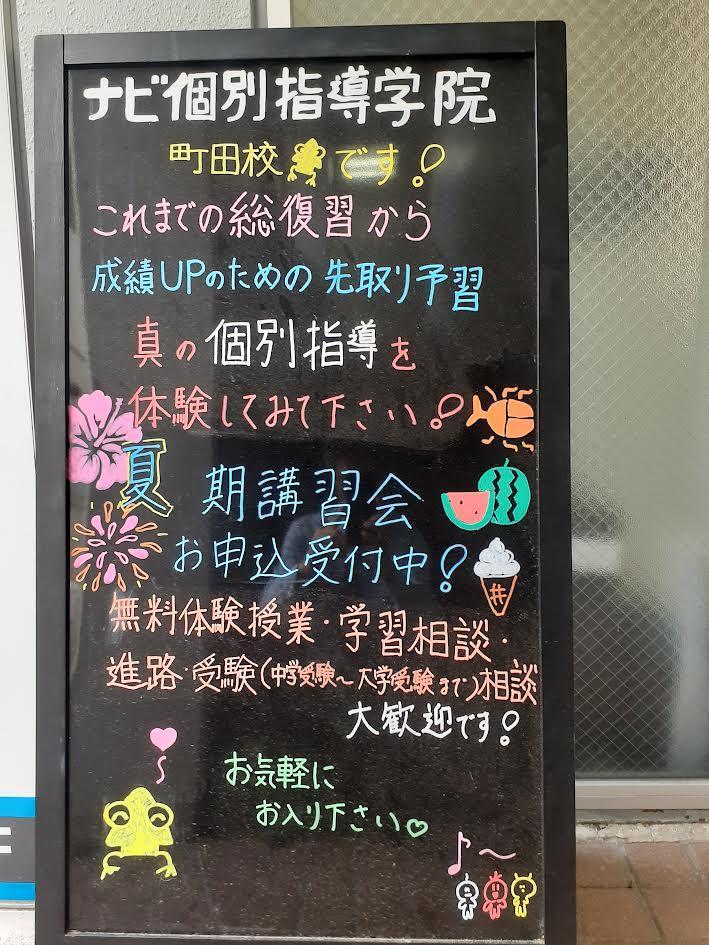 ナビ個別指導学院
町田校です!
これまでの総復習から
成績UPのための先取り予習
真の個別指導を
体験してみて下さい!
夏期講習会
お申込受付中!
無料体験授業・学習相談・
進路・受験(中学受験～大学受験まで)相談
大歓迎です!
お気軽に
お入り下さい♡